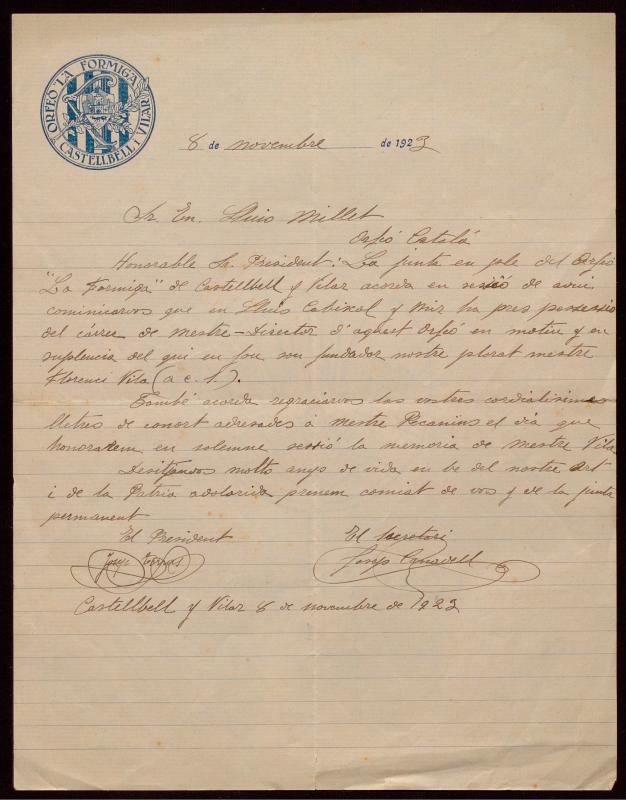 ORFEÓ LA FORMIGA
CASTELLBELL I VILAR
8 de novembre de 1923
Sr. En. Lluis Millet
Orfeó Catalá
Honorable Sr. President: La junta en ple del Orfeó
"La Formiga" de Castellbell y Vilar acorda en sessió de avui
cominicarvos que en Lluis Cabixol y Mir ha pres possessio
del cárrec de Mestre-Director d'aquest Orfeó en motiu y en
suplencia del qui en fou son fundador nostre plorat mestre
Florenci Vila (a c. s.).
També acorda regraciarvos las vostres cordialisimes
lletres de conort adresades á mestre Pecanins el día que
honorarem en solemne sessió la memoria de mestre Vila
Desitjanvos molts anys de vida en be del nostre Art
i de la Patria adolorida prenem comiat de vos y de la junta
permanent
El President El Secretari
Josep Josep
Castellbell y Vilar 8 de novembre de 1923